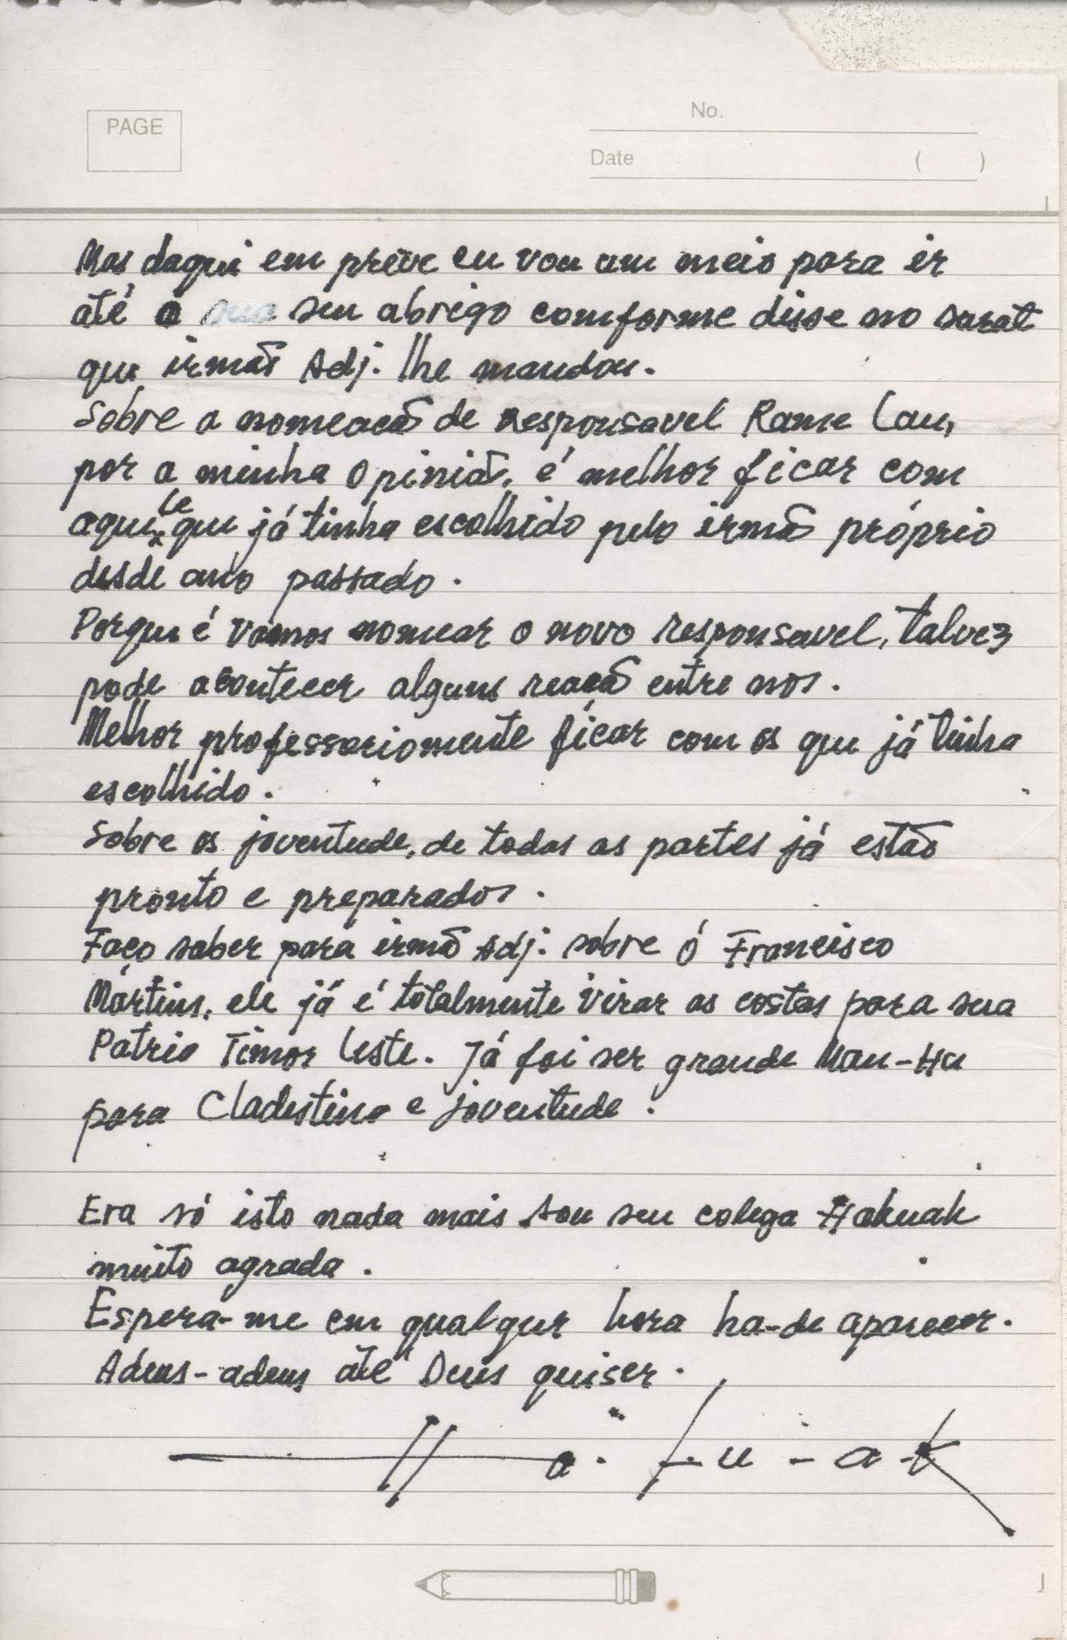 PAGE
No.
Date ( )
Mas daqui em preve eu vou um meio para ir
até o seu abrigo comforme disse no surat
que irmão Adj. lhe mandou.
Sobre a nomeacão de responsavel Rame Lau,
por a minha Opinião, é melhor ficar com
aquele que já tinha escolhido pelo irmão próprio
desde ano passado.
Porque é vamos nomear o novo responsavel, talvez
pode acontecer alguns reacão entre nos.
Melhor professoriomente ficar com os que já tinha
escolhido.
Sobre os joventude, de todas as partes já estão
pronto e preparados.
Faço saber para irmão Adj. sobre ó Francisco
Mártins, ele já é totalmente virar as costas para sua
Patria Timor Leste. Já foi ser grande Mau-Hu
para Cladestina e joventude.
Era só isto nada mais sou seu colega Hakuak
muito agrada.
Espera-me em qualquer hora ha-de aparecer.
Adeus-adeus até Deus quiser.